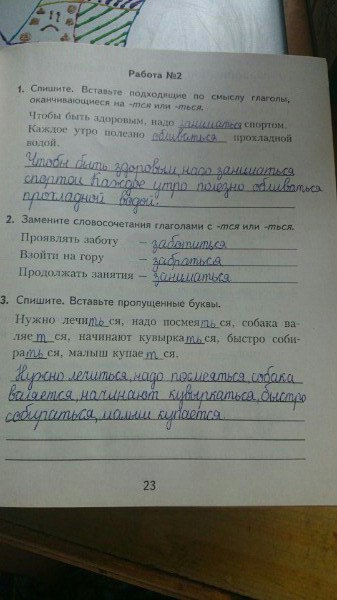 Работа №2
1. Спишите. Вставьте подходящие по смыслу глаголы,
оканчивающиеся на -тся или -ться.
Чтобы быть здоровым, надо заниматься спортом.
Каждое утро полезно обливаться прохладной
водой.
Чтобы быть здоровым, надо заниматься
спортом Каждое утро полезно обливаться
прохладной водой.
2. Замените словосочетания глаголами с -тся или -ться.
Проявлять заботу – заботиться
Взойти на гору – забраться
Продолжать занятия – заниматься
3. Спишите. Вставьте пропущенные буквы.
Нужно лечиться, надо посмеяться, собака ва-
ляется, начинают кувыркаться, быстро соби-
раться, малыш купается.
Нужно лечиться, надо посмеяться, собака
валяется, начинают кувыркаться, быстро
собираться, малыш купается
23